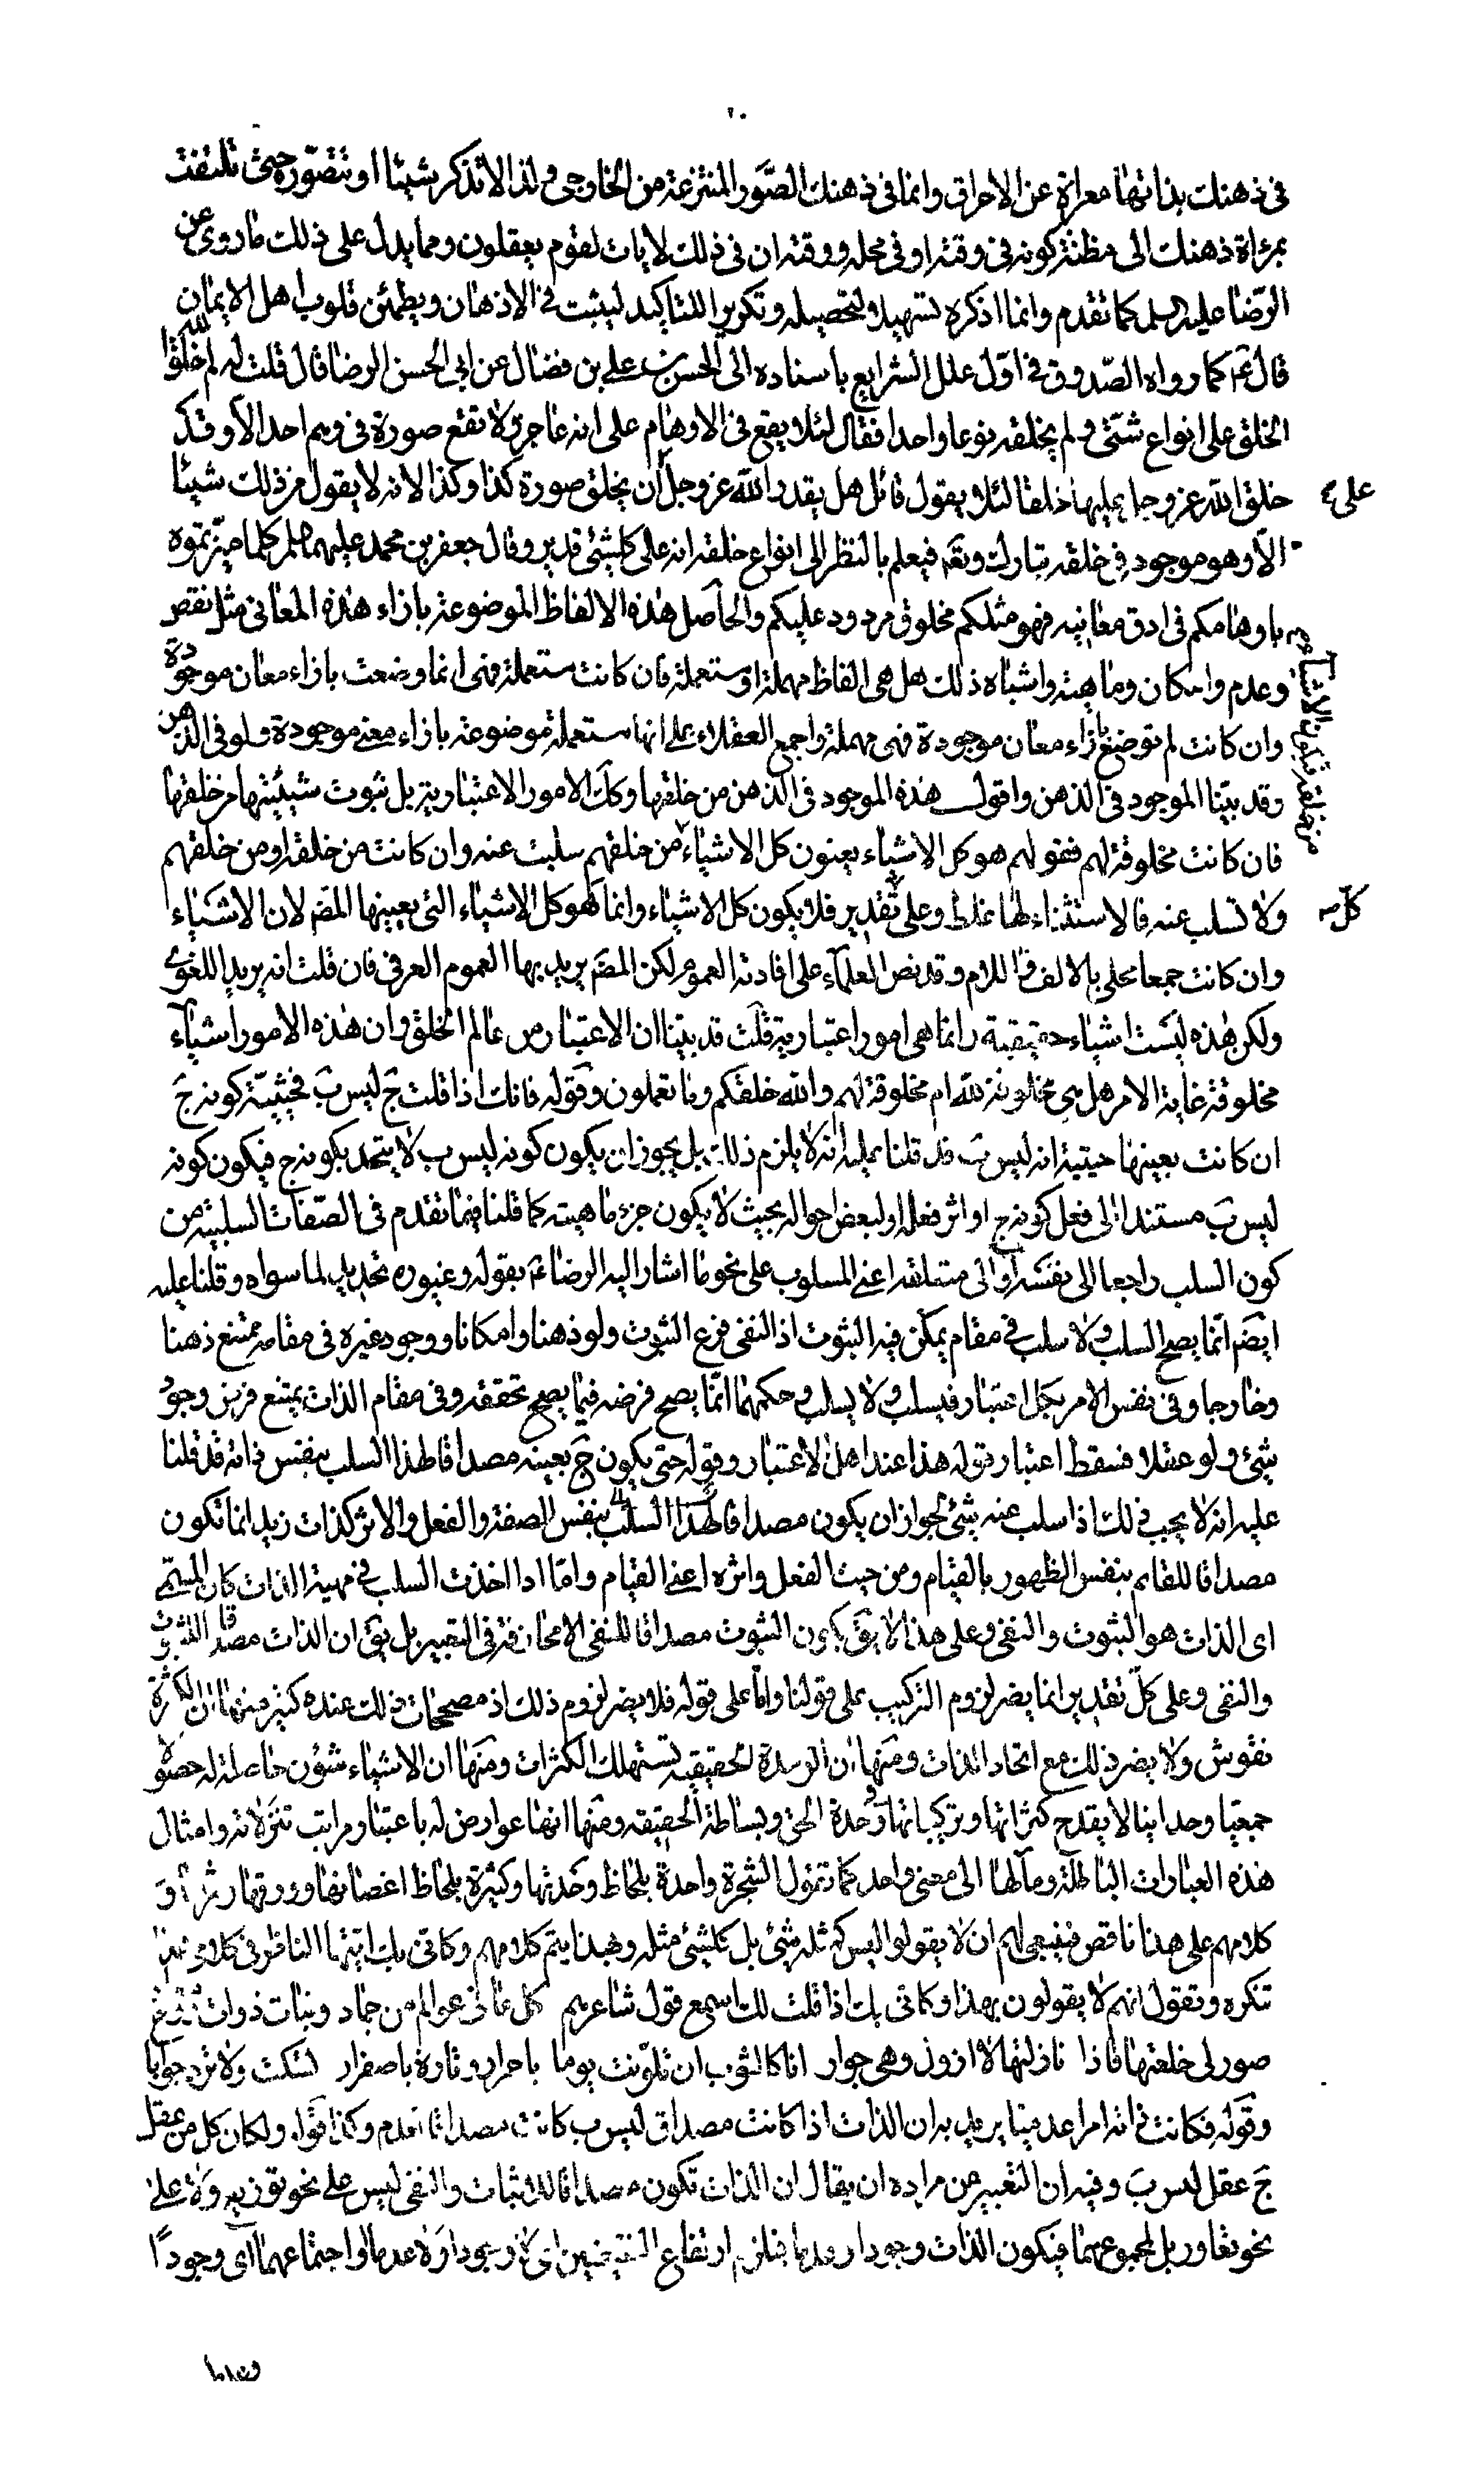 ٢٠
في ذهنك بذاتها معراة عن الاحراق وانما في ذهنك الصّور المنتزعة من الخارجي ولذا لا تذكر شيئا او تتصوّره حتى تلتفت
بمرآة ذهنك الى مظنة كونه في وقته او في محله ووقته ان في ذلك لايات لقوم يعقلون ومما يدل على ذلك ما روى عن
الرّضا عليه السلم كما تقدم وانما اذكره تسهيلا لتحصيله وتكريرا للتاكيد ليثبت في الاذهان ويطمئن قلوب اهل الايمان
قال ع كما رواه الصّدوق في اوّل علل الشرايع باسناده الى الحسن بن علي بن فضال عن ابي الحسن الرضا قال قلت له لم خلق الله
الخلق على انواع شتّى ولم يخلقه نوعا واحدا فقال لئلا يقع في الاوهام على انه عاجز ولا تقع صورة في وهم احد الا وقد
خلق الله عز وجل عليها خلقا لئلا يقول قائل هل يقدر الله عز وجل ان يخلق صورة كذا وكذا لانه لا يقول من ذلك شيئا
على
الّا وهو موجود في خلقه تبارك وتعم فيعلم بالنظر الى انواع خلقه انه على كلشئ قدير وقال جعفر بن محمد عليهما السلم كلما ميّزتموه
باوهامكم في ادق معانيه فهو مثلكم مخلوق مردود عليكم والحاصل هذه الالفاظ الموضوعة بازاء هذه المعاني مثل نقص
وعدم وامكان وماهية واشباه ذلك هل هي الفاظ مهملة او مستعملة فان كانت مستعملة فهي انما وضعت بازاء معان موجودة
وان كانت لم توضع بازاء معان موجودة فهي مهملة واجمع العقلاء على انها مستعملة موضوعة بازاء معنى موجودة ولو في الذهن
وقد بيّنا الموجود في الذهن واقول هذه الموجود في الذهن من خلقها وكل الامور الاعتبارية بل ثبوت شيئيتها من خلقها
فان كانت مخلوقة لهم فقولهم هو كل الاشياء يعنون كل الاشياء من خلقهم سلبت عنه وان كانت من خلقه او من خلقهم
ولا تسلب عنه فالاستثناء لها غلط وعلى تقدير فلا يكون كل الاشياء وانما هو كل الاشياء التي يعنيها المصّ لان الاشياء
كلّ
وان كانت جمعا محلى بالالف واللام وقد نص العلماء على افادته العموم لكن المصّ يريد بها العموم العرفي فان قلت انه يريد اللغوي
ولكن هذه ليست اشياء حقيقية وانما هي امور اعتبارية قلت قد بيّنا ان الاعتبار من عالم الخلق وان هذه الامور اشياء
مخلوقة غاية الامر هل هي مخلوقة لله ام مخلوقة لهم والله خلقكم وما تعملون وقوله فانك اذا قلت ج ليس ب فحيثيّة كونه ج
ان كانت بعينها حيثية انه ليس ب قد قلنا عليه انه لا يلزم ذلك بل يجوز ان يكون كونه ليس ب لا يتحد بكونه ج فيكون كونه
ليس ب مستندا الى فعل كونه ج او اثر فعله او لبعض احواله بحيث لا يكون جزء ماهيته كما قلنا فيما تقدم في الصّفات السلبية من
كون السلب راجعا الى نفسه او الى متعلقه اعني المسلوب على نحو ما اشار اليه الرضا ع بقوله وغيوره تحديد لما سواه وقلنا عليه
ايضم انما يصح السلب ولا سلب في مقام يمكن فيه الثبوت اذ النفي فرع الثبوت ولو ذهنا وامكانا ووجود غيره في مقامه ممتنع ذهنا
وخارجا وفي نفس الامر بكل اعتبار فيسلب ولا يسلب وحكمهما انّما يصح فرضه فيما يصح تحققه وفي مقام الذات يمتنع فرض وجود
شئ ولو عقلا فسقط اعتبار قوله هذا عند اهل الاعتبار وقوله حتى يكون ج بعينه مصداقا لهذا السلب بنفس ذاته قد قلنا
عليه انه لا يجب ذلك اذا سلب عنه شئ لجواز ان يكون مصداقا لهذا السلب بنفس الصفة والفعل والاثر كذات زيد انما تكون
مصداقا للقائم بنفس الظهور بالقيام ومن حيث الفعل واثره اعني القيام وامّا اذا اخذت السلب في مهية الذات كان المسمّى
اي الذات هو الثبوت والنفي وعلى هذا لا يقّ يكون الثبوت مصداقا للنفي الا مجازفة في التعبير بل يقّ ان الذات مصداق الثبوت
والنفي وعلى كلّ تقدير انما يضر لزوم التركيب على قولنا وامّا على قوله فلا يضر لزوم ذلك اذ مصححات ذلك عنده كثير منها ان الكثرة
نقوش ولا يضر ذلك مع اتحاد الذات ومنها ان الوحدة الحقيقية تستهلك الكثرات ومنها ان الاشياء شئون حاصلة له حصولا
جمعيا وحدانيا لا يقدح كثراتها وتركباتها وحدة الحق وبساطة الحقيقة ومنها انها عوارض له باعتبار مراتب تنزلاته وامثال
هذه العبارات الباطلة ومآلها الى معنى واحد كما تقول الشجرة واحدة بلحاظ وحدتها وكثيرة بلحاظ اغصانها وورقها
كلامهم على هذا ناقص فينبغي لهم ان لا يقولوا ليس كمثله شئ بل كلشئ مثله وبهذا يتم كلامهم وكاني بك ايها الناظر في كلامي
تنكره وتقول انهم لا يقولون بهذا وكاني بك اذا قلت لك اسمع قول شاعرهم كل ما في عوالمي من جماد ونبات وذوات
صور لي خلعتها فاذا ما زلتها لا ازول وهي جوار انا كالثوب ان تلوّنت يوما باحمرار وتارة باصفرار لسكت ولا ترد جوابا
وقوله فكانت ذاته امرا عدميّا يريد به ان الذات اذا كانت مصداق ليس ب كانت مصداقا لعدم وكذا قوله ولكان كل من عقل
ج عقل ليس ب وفيه ان التعبير عن مراده ان يقال ان الذات تكون مصداقا للاثبات والنفي ليس على نحو توزيع ولا على
نحو تعاور بل لمجموعهما فيكون الذات وجودا وعدما فيلزم ارتفاع النقيضين اي لا وجودا ولا عدما واجتماعهما اي وجودًا
وعدما